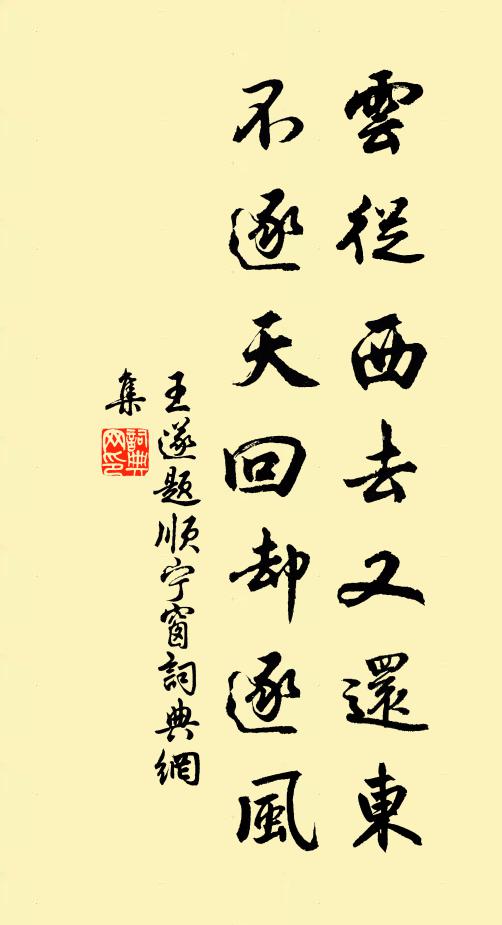 雲從西去又還東
不逐天回却逐風
王遂題順宁窗詞典網
集
詞典网印